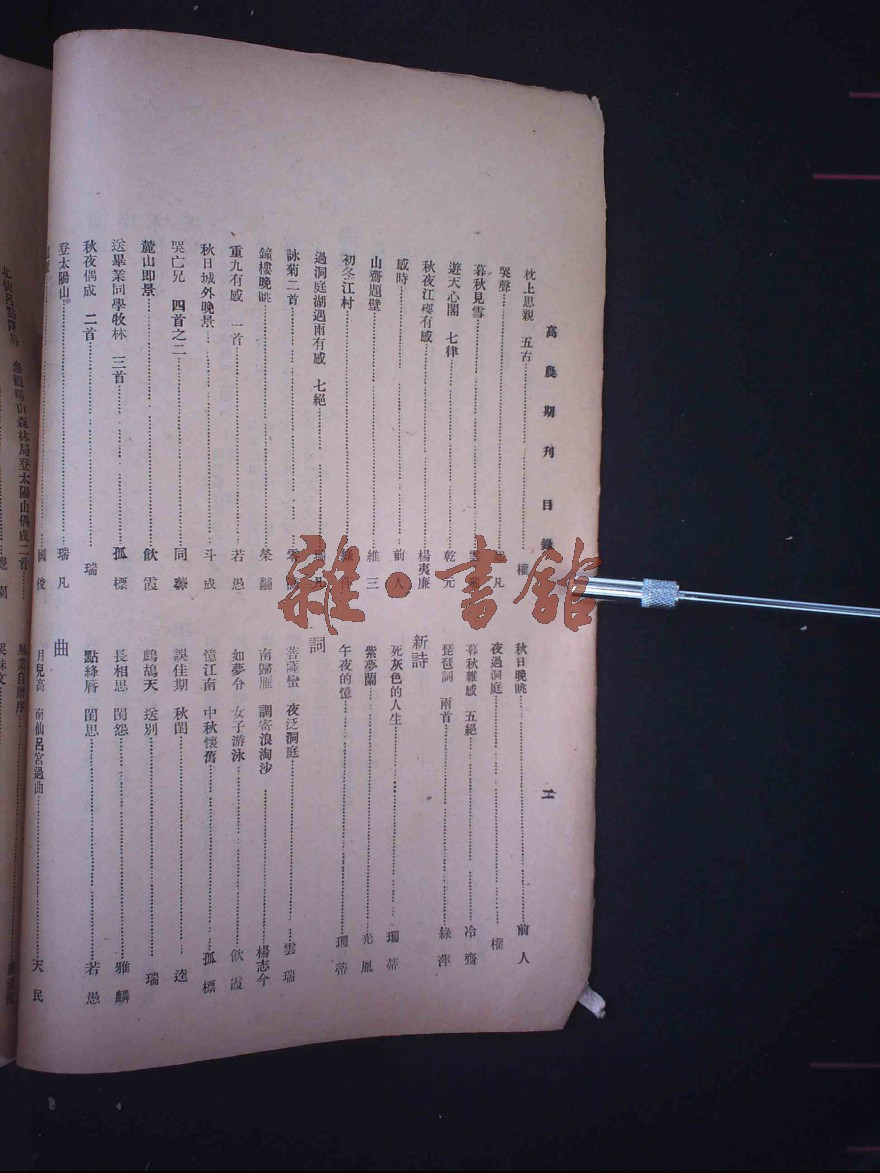 高農期刊目錄
二
枕上思親 五古 權
哭聲 凡
暮秋見雪
遊天心閣 七律 乾元
秋夜江樓有感 楊夷廉
感時 前人
山齋題壁 維三
初冬江村
過洞庭湖遇雨有感 七絕 瑞凡
詠菊二首
鐘樓晚眺 榮
重九有感 一首 若愚
秋日城外晚景 斗成
哭亡兄 四首之二 同
麓山即景 飲霞
送畢業同學牧林 三首 孤標
秋夜偶成 二首 瑞
登太陽山 瑞凡
國俊
秋日晚眺 前人
夜過洞庭 權
暮秋雜感 五絕 冷齋
琵琶詞 兩首 綠萍
新詩
死灰色的人生 珊蒂
紫夢蘭 光胤
午夜的憶 珊蒂
詞
菩薩蠻 夜泛洞庭 雲瑞
南歸雁 調寄浪淘沙 楊志今
如夢令 女子游泳 飲霞
憶江南 中秋懷舊 孤標
誤佳期 秋閨 逵
鷓鴣天 送別 瑞
長相思 閨怨 雅麟
點絳唇 閨思 若愚
曲
月兒高 南仙呂宮過曲 天民
山森林局登太陽山偶成二首
雜·書館